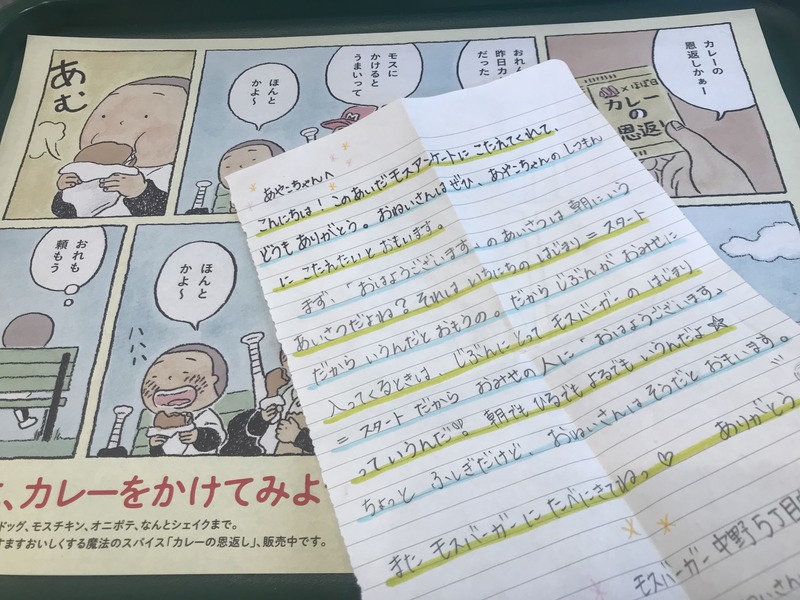 カレーの
恩返しかぁー
ほぼ日
カレー
の
恩返し
おれん
昨日カ
だった
モスに
かけると
うまいって
ほんと
かよ〜
あむ
ほんと
かよ〜
おれも
頼もう
、カレーをかけてみよ
ドッグ、モスチキン、オニポテ、なんとシェイクまで。
すますおいしくする魔法のスパイス「カレーの恩返し」、販売中です。
あやこちゃんへ
こんにちは! このあいだモスアンケートにこたえてくれて、
どうもありがとう。おねいさんはぜひ、あやこちゃんのしつもん
にこたえたいとおもいます。
まず、「おはようございます」のあいさつは朝にいう
あいさつだよね? それはいちにちのはじまり=スタート
だからいうんだとおもうの。だからじぶんがおみせに
入ってくるときは、じぶんにとってモスバーガーのはじまり
=スタートだからおみせの人に「おはようございます」
っていうんだ♡。朝でもひるでもよるでもいうんだよ☆
ちょっとふしぎだけど、おねいさんはそうだとおもいます。
ありがとう
またモスバーガーにたべにきてねっ♡
モスバーガー中野5丁目